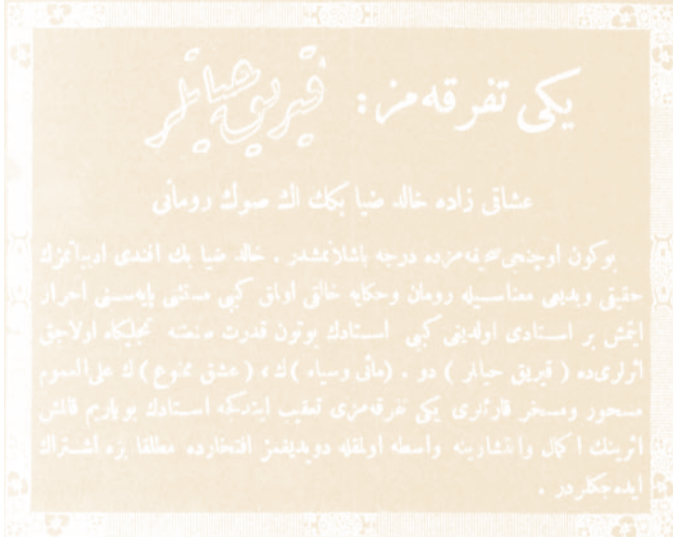 يكى تفرقه مز : قيريق حياتلر
عشاقى زاده خالد ضيا بكك اڭ صوڭ رومانى
بوكون اوچنجى صحيفه مزده درجه باشلانمشدر . خالد ضيا بك افندى ادبياتمزك
حقيقى وبديعى معناسيله رومان وحكايه خالقى اولق كبى مستثنى پايه سنى احراز
ايتمش بر استادى اولدينى كبى استادك بوتون قدرت صنعتنه تجليكاه اولاجق
اثرلرى ده ( قيريق حياتلر ) دو . ( مائى وسياه ) ك ، ( عشق ممنوع ) ك على العموم
مسحور ومسخر قارئلرى يكى تفرقه مزى تعقيب ايتدكجه استادك بو ياريم قالمش
اثرينك اكمال وانتشارينه واسطه اولمقله دويديغمز افتخارده مطلقا بزه اشتراك
ايده جكلردر .